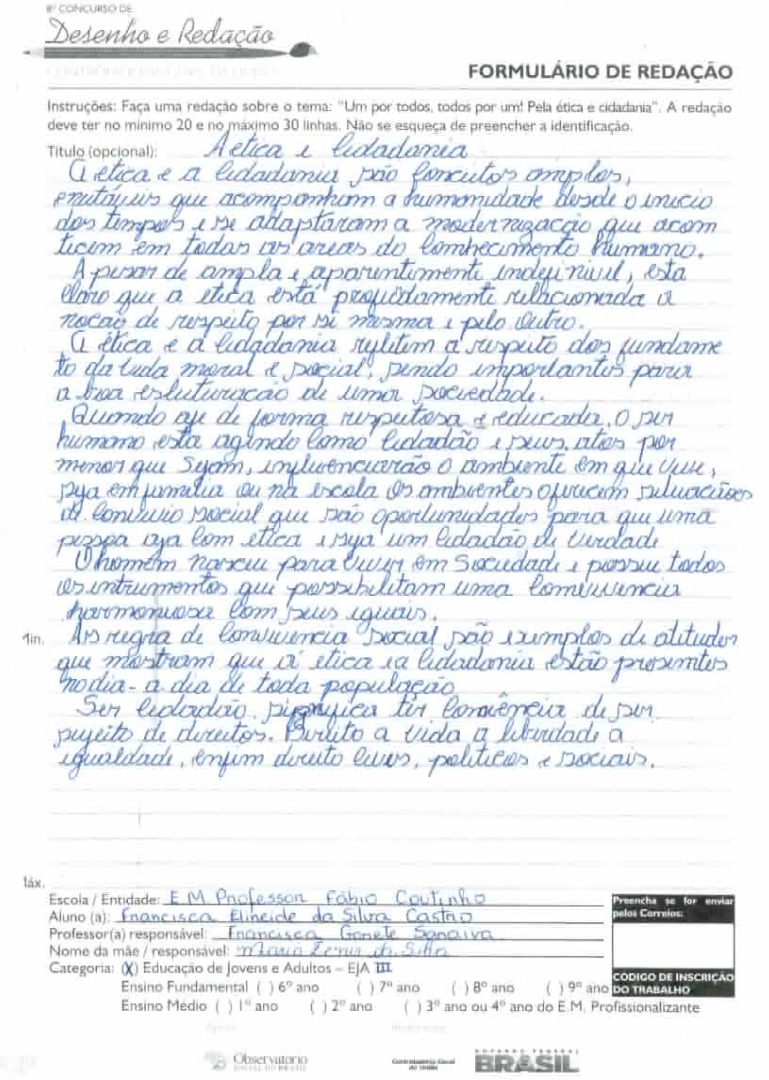 8º CONCURSO DE
Desenho e Redação
FORMULÁRIO DE REDAÇÃO
Instruções: Faça uma redação sobre o tema: "Um por todos, todos por um! Pela ética e cidadania". A redação
deve ter no mínimo 20 e no máximo 30 linhas. Não se esqueça de preencher a identificação.
Titulo (opcional): A etica e cidadania
A etica e a cidadania são concuitos amplos,
que acompanham a humanidade desde o inicio
dos tempos e se adaptaram a modernizacção que acom
ticem em todas as areas do comhecimento humano.
A pesar de ampla e aparentimente indefinivel, esta
claro que a etica está profudamente relacionada a
nocão de respeito por si mesma e pelo outro.
A ética e a cidadania a respeito dos fundame
to da vida moral e social, sendo importantes para
a boa estuturacão de uma sociedade.
Quamdo aje de forma respeitosa e educada. O ser
humamo esta agindo como cidadão e seus atos por
menor que sejam, influenciarão o ambiente em que vive,
seja em familia ou na escola os ambientes oferecem situacões
de convivio social que são oportunidades para que uma
pessoa aja com etica e seja um cidadão de verdade
O homem nasceu para viver em Sociedade e possue todos
os intrumentos que possibilitam uma comvivencia
harmoniosa com seus iguais.
1in. As regra de convivência social são exemplos de atitudes
que mostram que a ética e a cidadania estão presentes
no dia- a dia de toda população
Ser cidadão significa ter conciência de ser
sujeito de direitos. Direito a vida a liberdade a
igualdade, enfim direito civis, politicos e sociais.
láx.
Escola / Entidade: E M Professor Fábio Coutinho
Aluno (a): Francisca Elineide da Silva Castro
Professor(a) responsável: Francisca Gonete Saraiva
Nome da mãe / responsável: Maria da Silva
Categoria: (X) Educação de Jovens e Adultos – EJA III
Ensino Fundamental ( ) 6º ano ( ) 7º ano ( ) 8º ano ( ) 9º ano
Ensino Médio ( ) 1º ano ( ) 2º ano ( ) 3º ano ou 4º ano do E.M. Profissionalizante
Preencha se for enviar
pelos Correios:
CÓDIGO DE INSCRIÇÃO
DO TRABALHO
Observatório
SOCIAL DO BRASIL
Controladoria-Geral
da União
GOVERNO FEDERAL
BRASIL